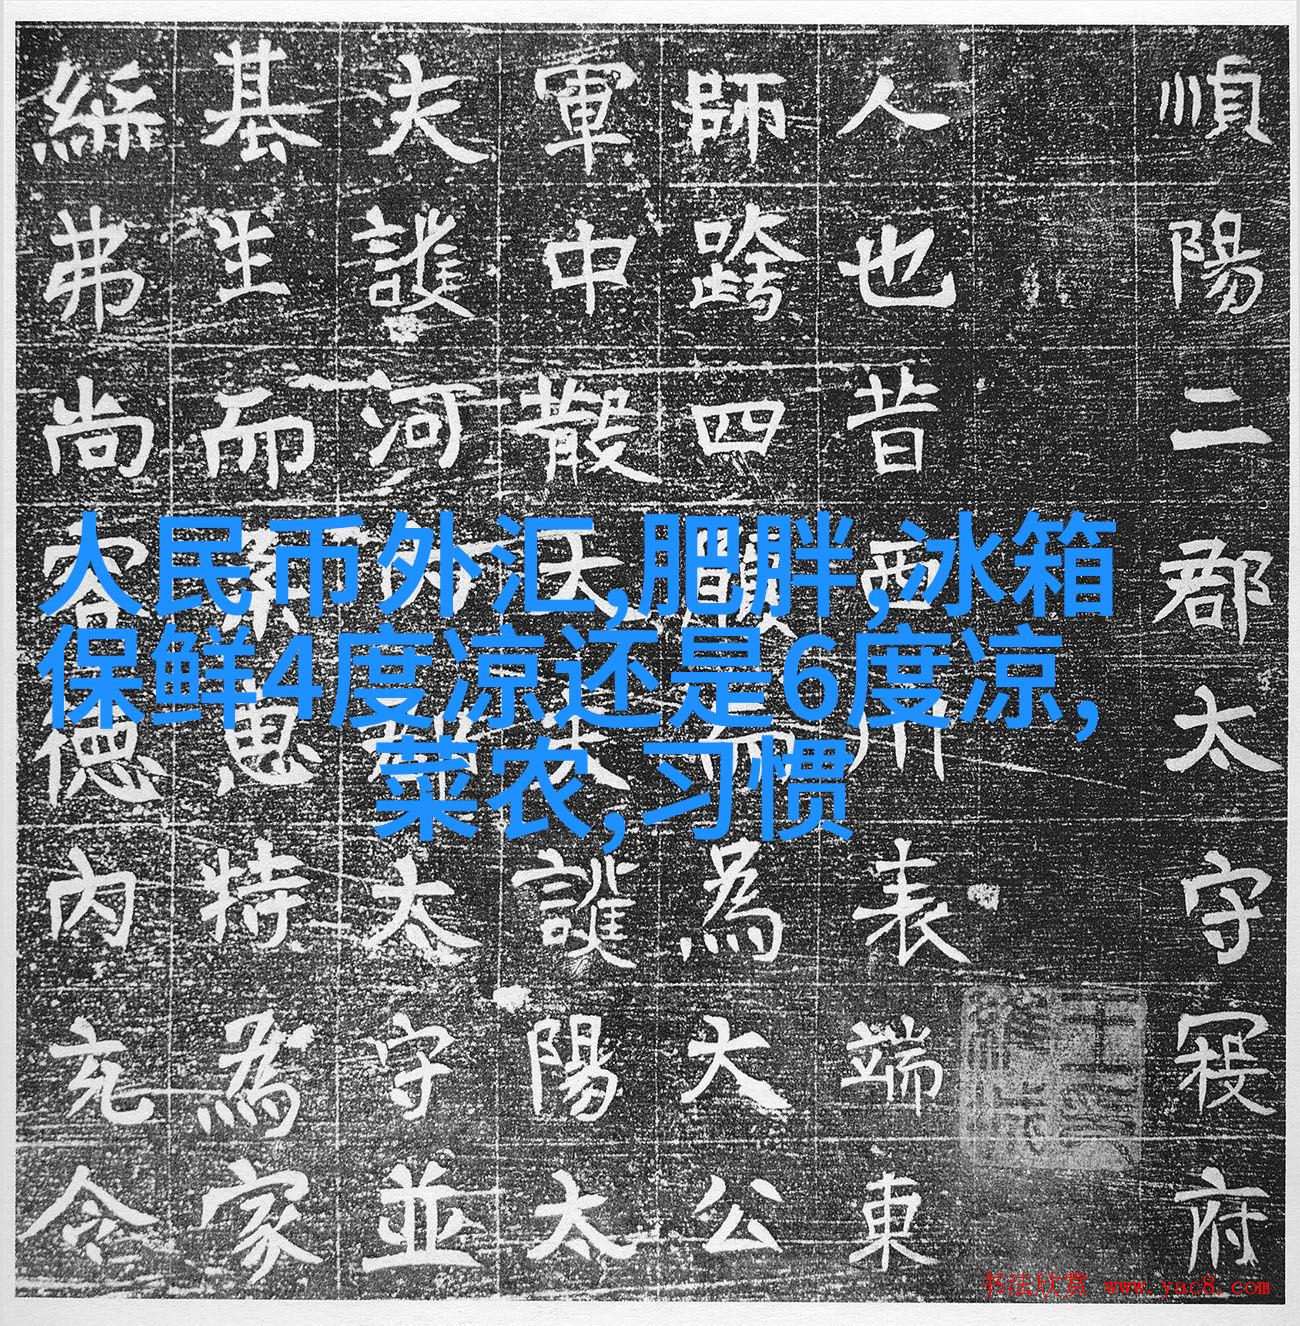 順陽二郡太守寇府
人也昔西川表端東
師跨四為大公
軍中散大夫護陽太
夫護河太守並
基生而惠特為家
弗尚德內充
人民币外汇,肥胖,冰箱
保鲜4度凉还是6度凉,
菜农,习惯
书法欣赏 www.yac8.com